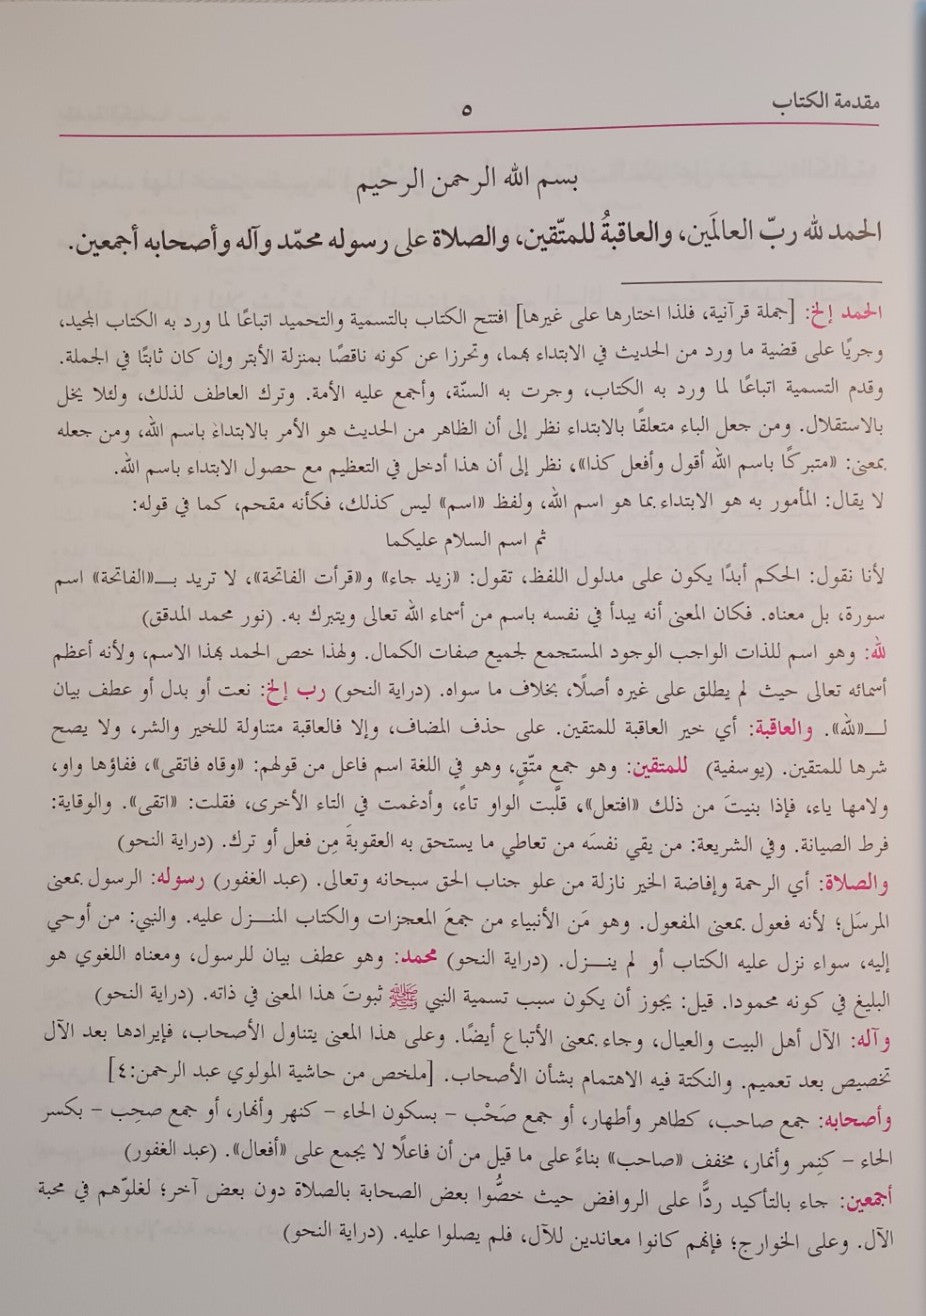 مقدمة الكتاب
٥
بسم الله الرحمن الرحيم
الحمد لله ربّ العالَمين، والعاقبةُ للمتّقين، والصلاة على رسوله محمّد وآله وأصحابه أجمعين.
الحمد إلخ: [جملة قرآنية، فلذا اختارها على غيرها] افتتح الكتاب بالتسمية والتحميد اتباعًا لما ورد به الكتاب المجيد،
وجريًا على قضية ما ورد من الحديث في الابتداء بهما، وتحرزا عن كونه ناقصًا بمنزلة الأبتر وإن كان ثابتًا في الجملة.
وقدم التسمية اتباعًا لما ورد به الكتاب، وجرت به السنّة، وأجمع عليه الأمة. وترك العاطف لذلك، ولئلا يخل
بالاستقلال. ومن جعل الباء متعلقًا بالابتداء نظر إلى أن الظاهر من الحديث هو الأمر بالابتداء باسم الله، ومن جعله
بمعنى: «متبركًا باسم الله أقول وأفعل كذا»، نظر إلى أن هذا أدخل في التعظيم مع حصول الابتداء باسم الله.
لا يقال: المأمور به هو الابتداء بما هو اسم الله، ولفظ «اسم» ليس كذلك، فكأنه مقحم، كما في قوله:
ثم اسم السلام عليكما
لأنا نقول: الحكم أبدًا يكون على مدلول اللفظ، تقول: «زيد جاء» و«قرأت الفاتحة»، لا تريد بــ«الفاتحة» اسم
سورة، بل معناه. فكان المعنى أنه يبدأ في نفسه باسم من أسماء الله تعالى ويتبرك به. (نور محمد المدقق)
لله: وهو اسم للذات الواجب الوجود المستجمع لجميع صفات الكمال. ولهذا خص الحمد بهذا الاسم، ولأنه أعظم
أسمائه تعالى حيث لم يطلق على غيره أصلًا، بخلاف ما سواه. (دراية النحو) رب إلخ: نعت أو بدل أو عطف بيان
لــ«لله». والعاقبة: أي خير العاقبة للمتقين. على حذف المضاف، وإلا فالعاقبة متناولة للخير والشر، ولا يصح
شرها للمتقين. (يوسفية) للمتقين: وهو جمع متّقٍ، وهو في اللغة اسم فاعل من قولهم: «وقاه فاتقى»، ففاؤها واو،
ولامها ياء، فإذا بنيتَ من ذلك «افتعل»، قلّبت الواو تاءً، وأدغمت في التاء الأخرى، فقلت: «اتقى». والوقاية:
فرط الصيانة. وفي الشريعة: من يقي نفسَه من تعاطي ما يستحق به العقوبةَ مِن فعل أو ترك. (دراية النحو)
والصلاة: أي الرحمة وإفاضة الخير نازلة من علو جناب الحق سبحانه وتعالى. (عبد الغفور) رسوله: الرسول بمعنى
المرسَل؛ لأنه فعول بمعنى المفعول. وهو مَن الأنبياء من جمعَ المعجزات والكتاب المنـــزل عليه. والنبي: من أوحي
إليه، سواء نزل عليه الكتاب أو لم ينـــزل. (دراية النحو) محمد: وهو عطف بيان للرسول، ومعناه اللغوي هو
البليغ في كونه محمودا. قيل: يجوز أن يكون سبب تسمية النبي ﷺ ثبوتَ هذا المعنى في ذاته. (دراية النحو)
وآله: الآل أهل البيت والعيال، وجاء بمعنى الأتباع أيضًا. وعلى هذا المعنى يتناول الأصحاب، فإيرادها بعد الآل
تخصيص بعد تعميم. والنكتة فيه الاهتمام بشأن الأصحاب. [ملخص من حاشية المولوي عبد الرحمن:٤]
وأصحابه: جمع صاحب، كطاهر وأطهار، أو جمع صَحْب – بسكون الحاء – كنهر وأنهار، أو جمع صحِب – بكسر
الحاء – كنِمر وأنمار، مخفف «صاحب» بناءً على ما قيل من أن فاعلًا لا يجمع على «أفعال». (عبد الغفور)
أجمعين: جاء بالتأكيد ردًّا على الروافض حيث خصُّوا بعض الصحابة بالصلاة دون بعض آخر؛ لغلوّهم في محبة
الآل. وعلى الخوارج؛ فإنهم كانوا معاندين للآل، فلم يصلوا عليه. (دراية النحو)